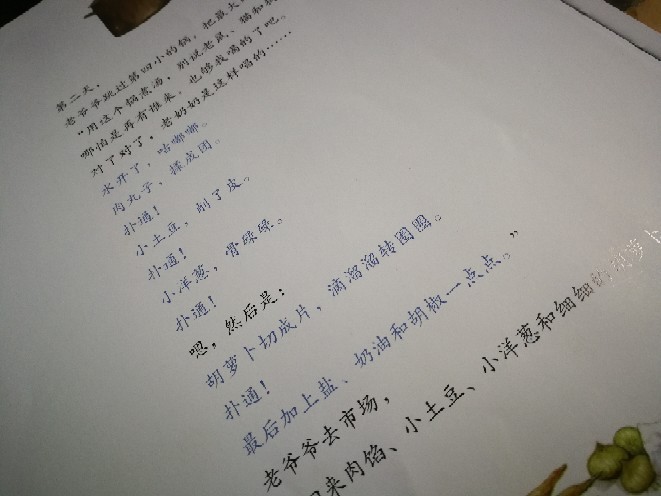 第二天，
老爷爷跳过第四小的锅，把最大
“用这个锅煮汤，别说老鼠、猫和
哪怕是再有谁来，也够我喝的了吧。
对了对了，老奶奶是这样唱的……
水开了，咕嘟嘟。
肉丸子，揉成团。
扑通！
小土豆，削了皮。
扑通！
小洋葱，骨碌碌。
扑通！
嗯，然后是：
胡萝卜切成片，滴溜溜转圈圈。
扑通！
最后加上盐、奶油和胡椒一点点。”
老爷爷去市场，
来肉馅、小土豆、小洋葱和细细的胡萝卜